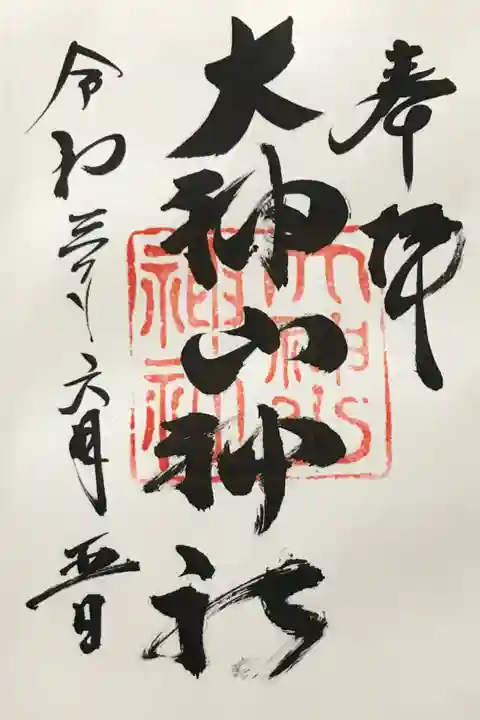 奉拝
大神山神社
令和三年六月五日
大神山
神社